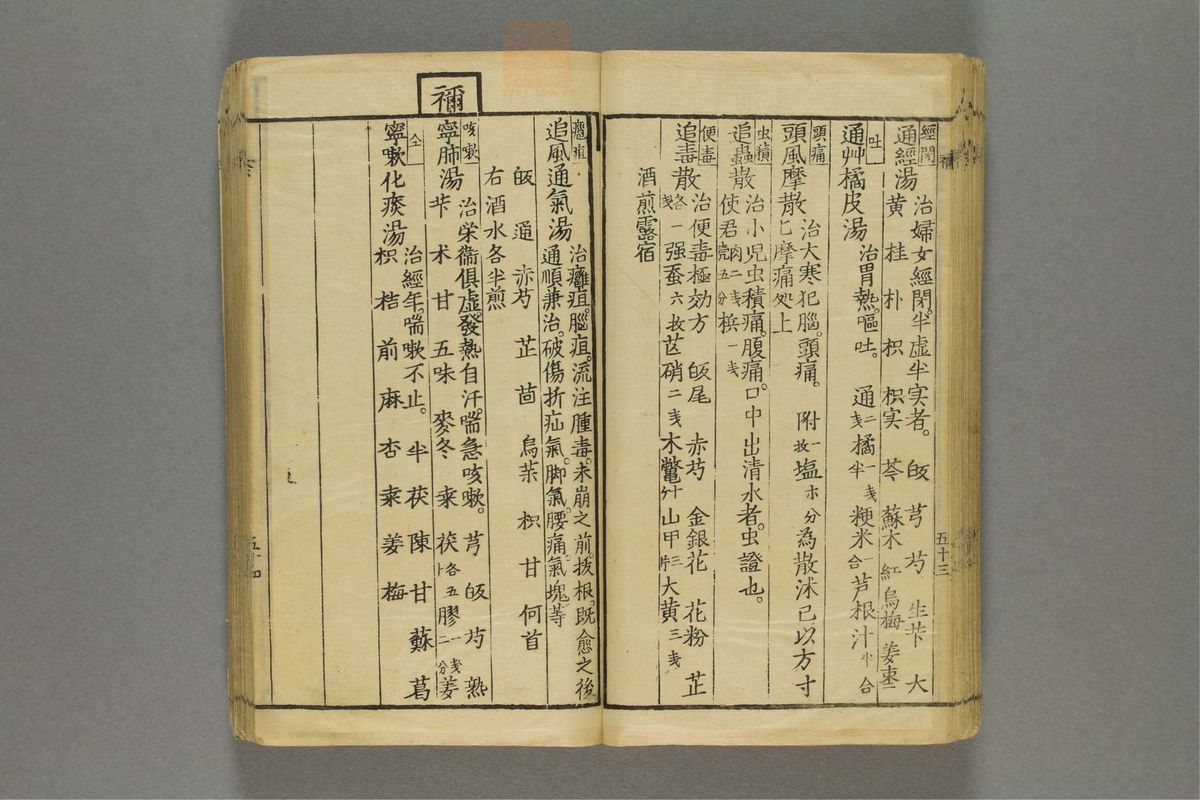 五十三
經閉
通經湯
治婦女經閉。半虛半实者。 皈 芎 芍 生芐 大
黄 桂 朴 枳 枳実 芩 蘇木 紅 烏梅 姜 棗二
吐
通艸橘皮湯
治胃熱。嘔吐。 通二戔 橘一戔半 粳米一合 芦根汁半合
頭痛
頭風摩散
治大寒犯腦。頭痛。 附一枚 塩 分 為散沐已以方寸
匕摩痛処上
虫積
追蟲散
治小児虫積痛。腹痛。口中出清水者。虫證也。
使君肉二戔 売五分 梹一戔
便毒
追毒散
治便毒極効方 皈尾 赤芍 金銀花 花粉 芷
各一戔 强蚕六枚 芒硝二戔 木鼈 山甲三片 大黄三戔
酒煎露宿
禰
癰疽
追風通氣湯
治癰疽。腦疽。流注腫毒。未崩之前。拔根。既愈之後。
通順兼治。破傷折疝氣。脚氣。腰痛。氣塊等
皈 通 赤芍 芷 茴 烏茱 枳 甘 何首
右酒水各半煎
咳嗽
寧肺湯
治栄衞俱虛。發熱自汗。喘急咳嗽。 芎 皈 芍 熟
芐 术 甘 五味 麥冬 桒 茯各五卜 膠一戔二分 姜
仝
寧嗽化痰湯
治經年。喘嗽不止。 半 茯 陳 甘 蘇 葛
枳 桔 前 麻 杏 桒 姜 梅